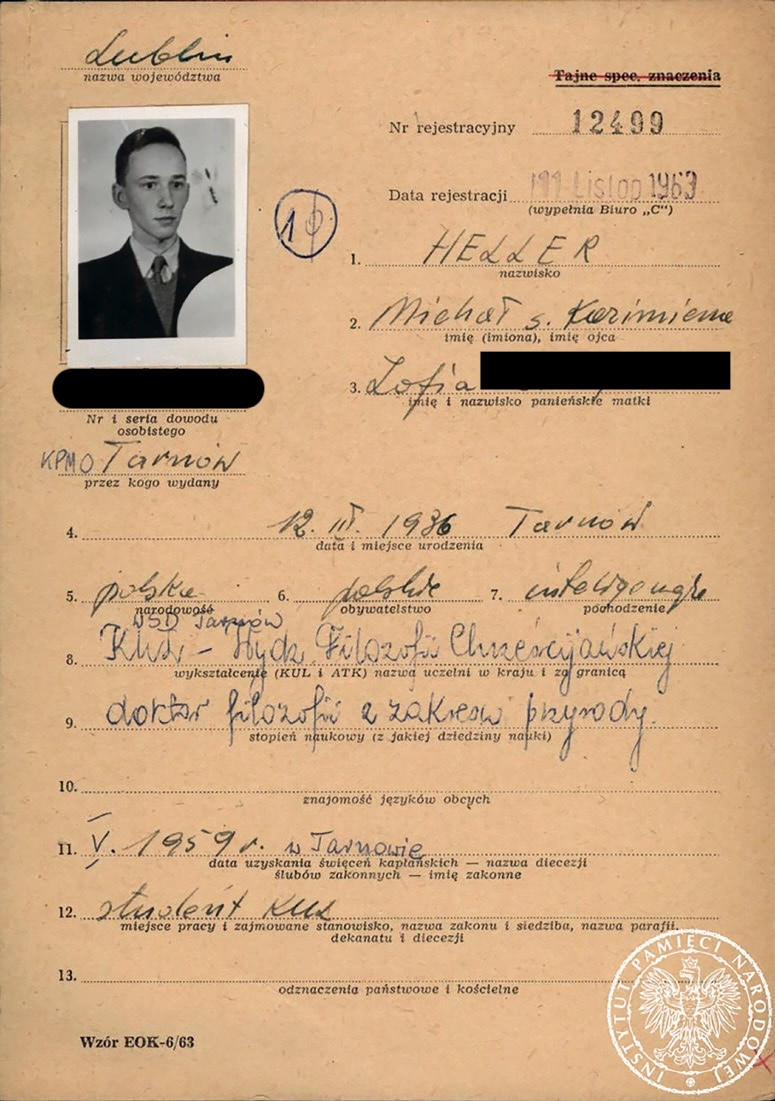 Lublin
nazwa województwa
Tajne spec. znaczenia
Nr rejestracyjny 12499
Data rejestracji 19 Listop 1963
(wypełnia Biuro „C")
10
1. HELLER
nazwisko
2. Michał s. Kazimierza
imię (imiona), imię ojca
3. Zofia
imię i nazwisko panieńskie matki
Nr i seria dowodu
osobistego
KPMO Tarnów
przez kogo wydany
4. 12. III. 1936 Tarnów
data i miejsce urodzenia
5. polska 6. polskie 7. inteligencja
narodowość obywatelstwo pochodzenie
WSD Tarnów
8. KUL – Wydz. Filozofii Chrześcijańskiej
wykształcenie (KUL i ATK) nazwa uczelni w kraju i za granicą
9. doktor filozofii z zakresu przyrody.
stopień naukowy (z jakiej dziedziny nauki)
10.
znajomość języków obcych
11. V. 1959 r. w Tarnowie
data uzyskania święceń kapłańskich — nazwa diecezji
ślubów zakonnych — imię zakonne
12. student KUL
miejsce pracy i zajmowane stanowisko, nazwa zakonu i siedziba, nazwa parafii,
dekanatu i diecezji
13.
odznaczenia państwowe i kościelne
Wzór EOK-6/63
INSTYTUT PAMIĘCI NARODOWEJ